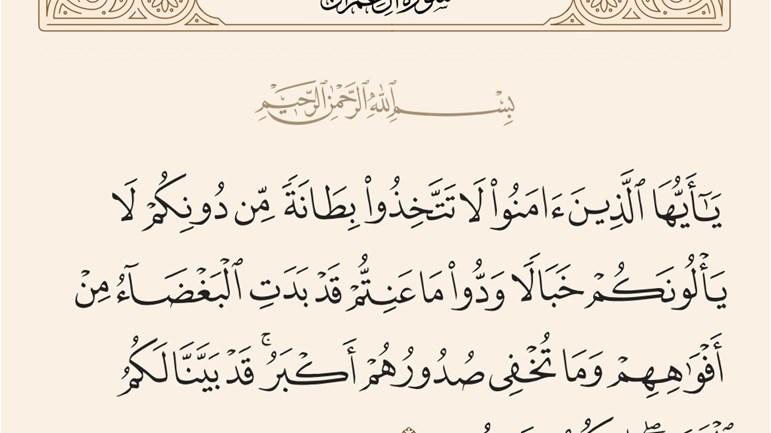 سورة آل عمران
بِسْمِ ٱللَّهِ ٱلرَّحْمَٰنِ ٱلرَّحِيمِ
يَٰٓأَيُّهَا ٱلَّذِينَ ءَامَنُوا۟ لَا تَتَّخِذُوا۟ بِطَانَةً مِّن دُونِكُمْ لَا
يَأْلُونَكُمْ خَبَالًا وَدُّوا۟ مَا عَنِتُّمْ قَدْ بَدَتِ ٱلْبَغْضَآءُ مِنْ
أَفْوَٰهِهِمْ وَمَا تُخْفِى صُدُورُهُمْ أَكْبَرُ ۚ قَدْ بَيَّنَّا لَكُمُ